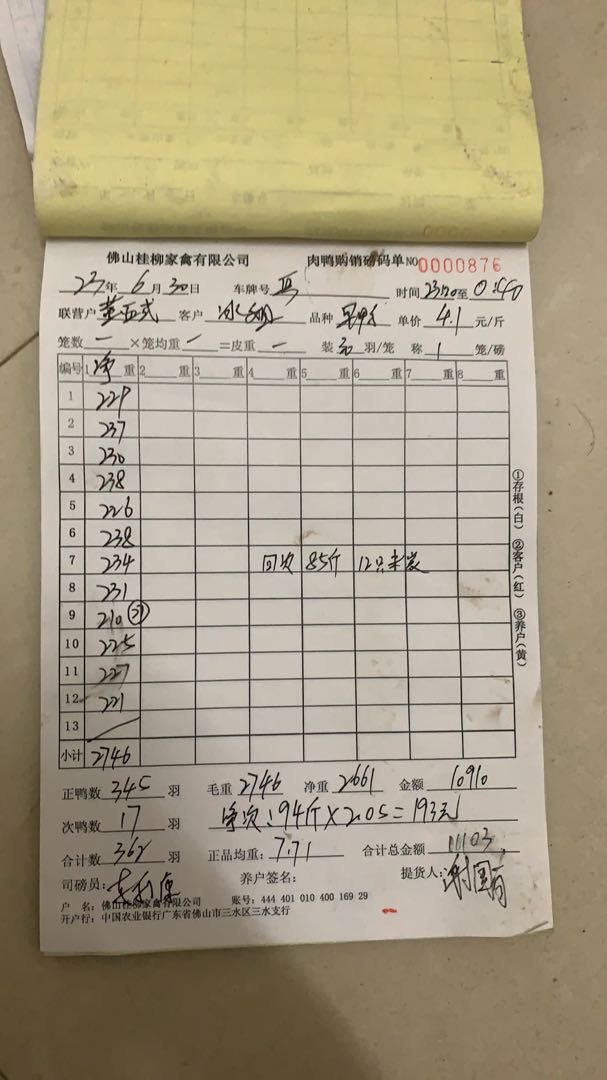 佛山桂柳家禽有限公司 肉鸭购销磅码单 NO 0000876
23年 6月 30日 车牌号 时间 至 0:40
联营户 客户 冰 品种 单价 4.1 元/斤
笼数 一 ×笼均重 一 =皮重 一 装 30 羽/笼 称 1 笼/磅
编号 1 净 重 2 重 3 重 4 重 5 重 6 重 7 重 8 重
1 229
2 237
3 230
4 238
5 226
6 238
7 234 回次 85斤 12只未装
8 231
9 210 (27)
10 225
11 227
12 221
13
小计 2746
①存根(白) ②客户(红) ③养户(黄)
正鸭数 345 羽 毛重 2746 净重 2661 金额 10910
次鸭数 17 羽 净次:94斤×2.05=193元
合计数 362 羽 正品均重: 7.71 合计总金额 11103
司磅员: 养户签名: 提货人: 谢国
户 名: 佛山桂柳家禽有限公司 账号: 444 401 010 400 169 29
开户行: 中国农业银行广东省佛山市三水区三水支行